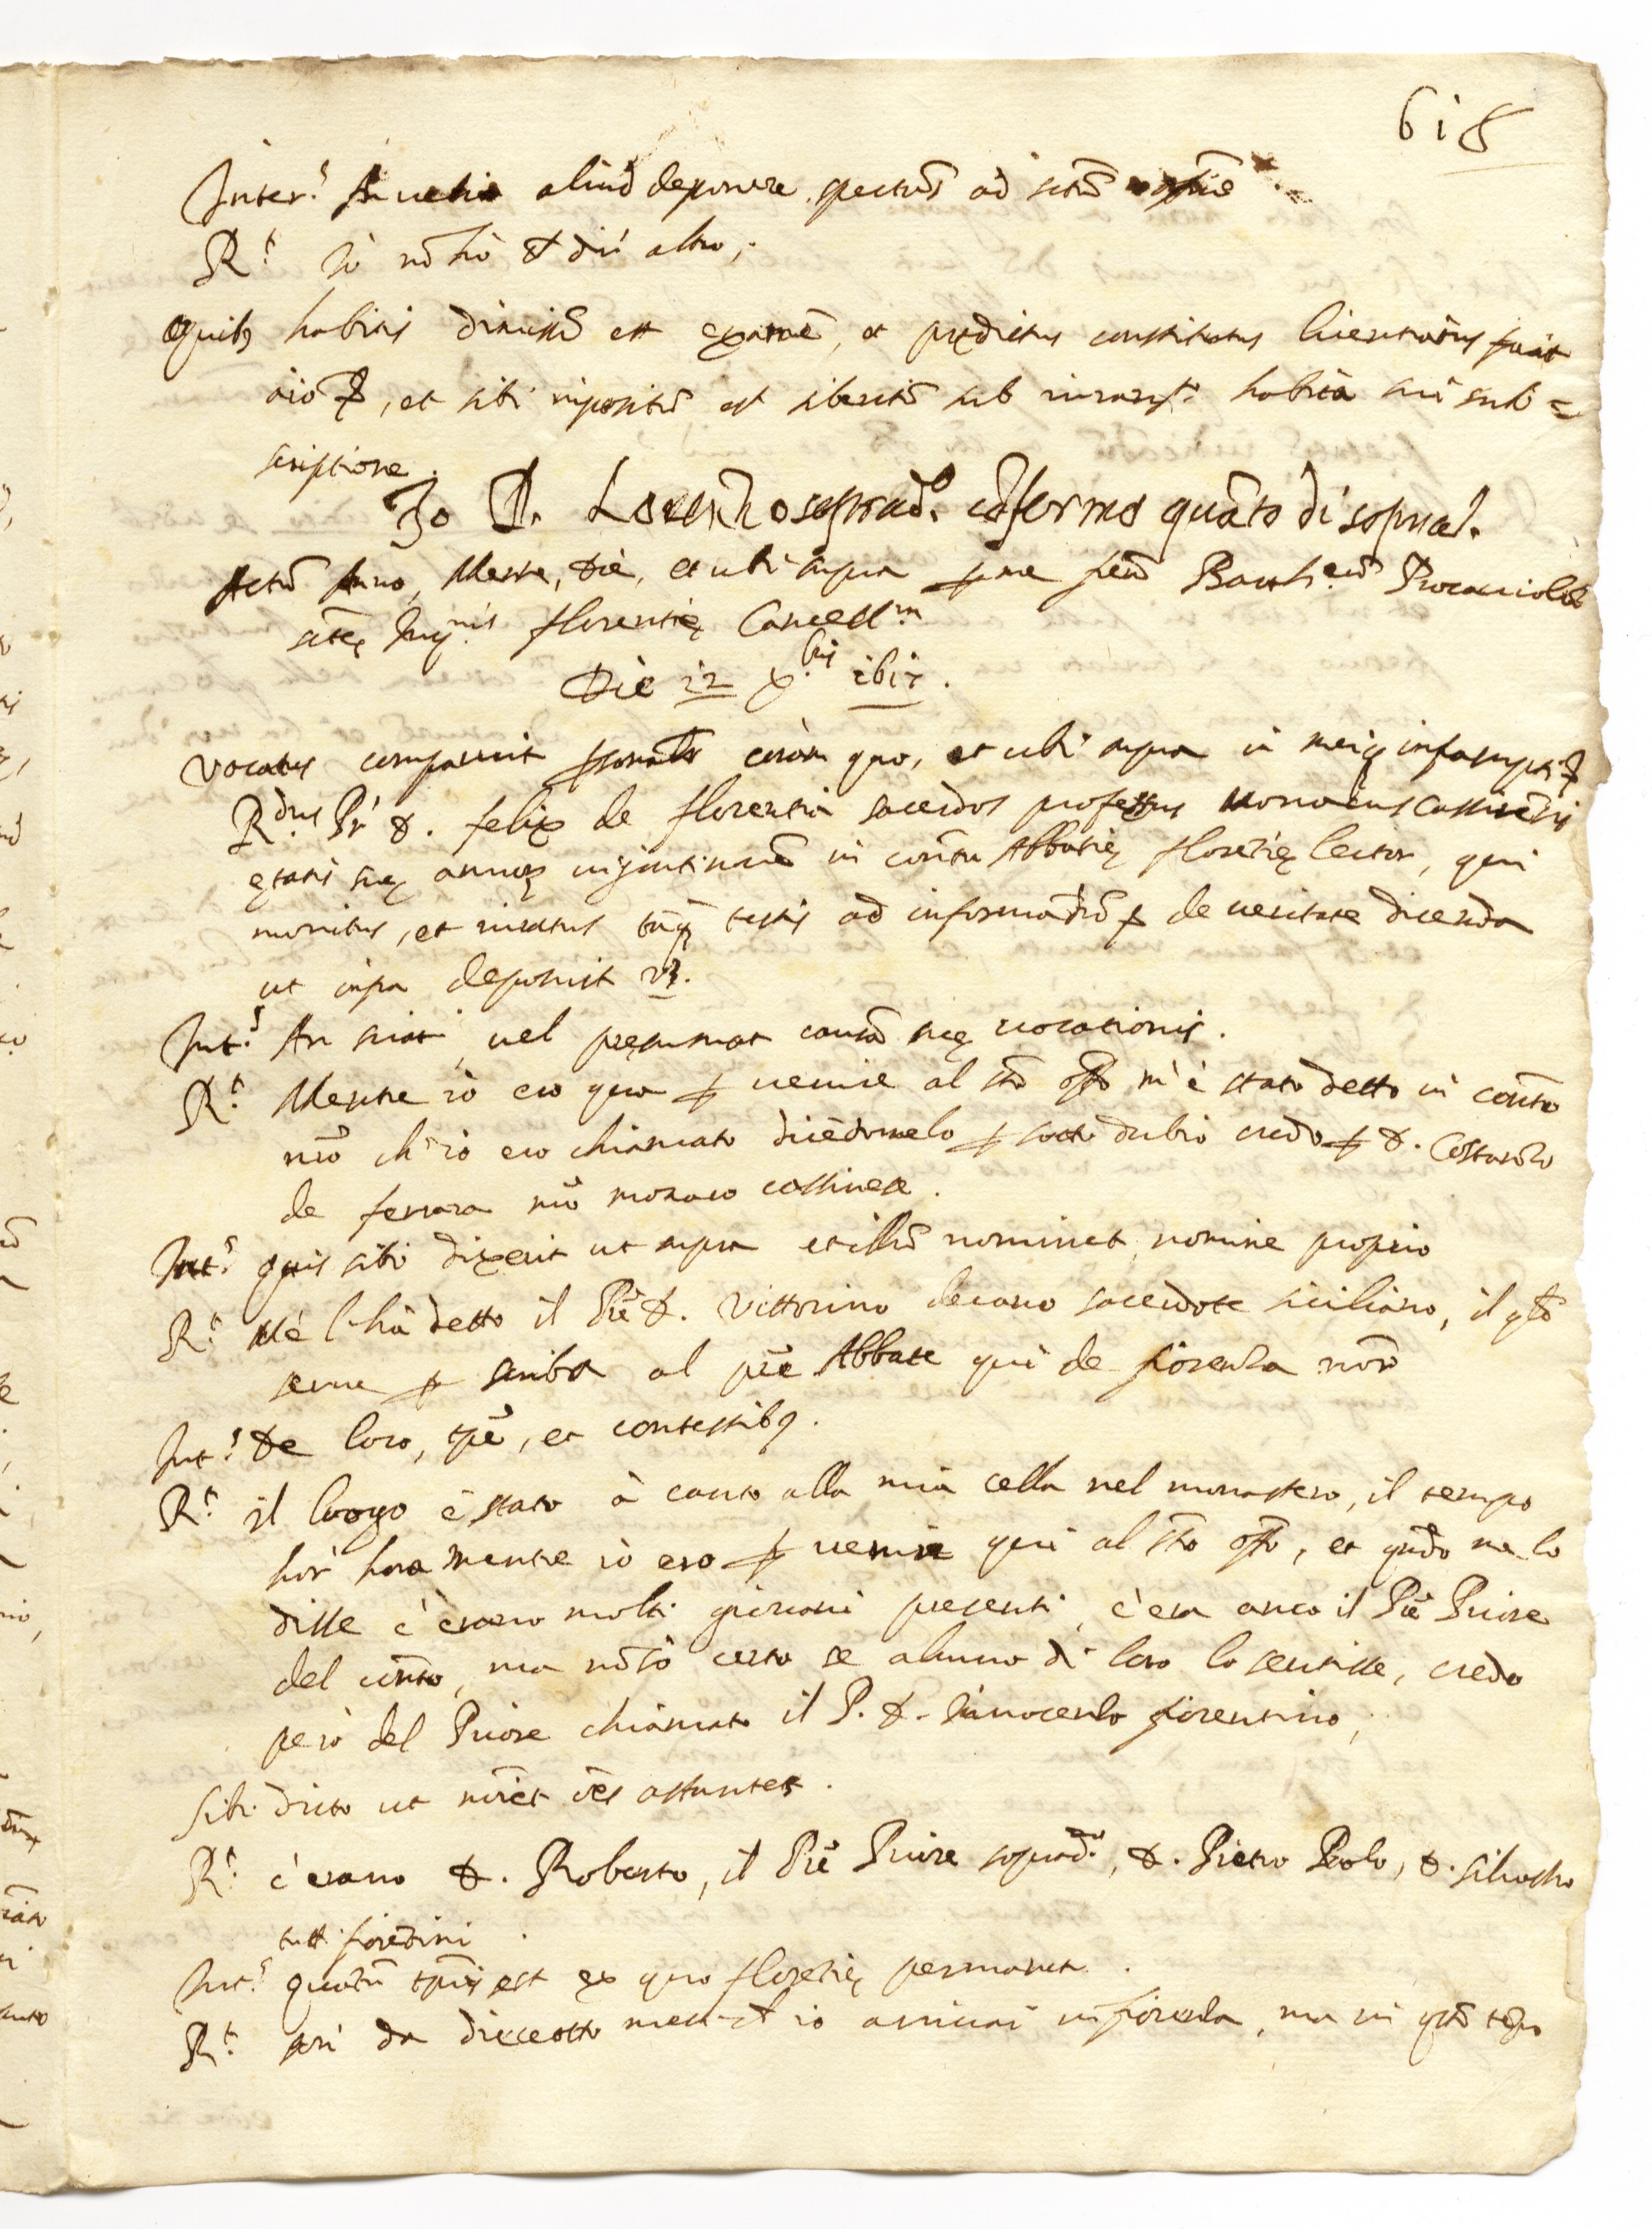 618
Inter.s An velit aliud deponere spectās ad sctū offiū
R.t Iò nō hò da dir' altro,
Quibȝ habitis dimissū est examē, et prędictus constitutus licentiatus fuit
aīo ꝛ, et sibi inpositū est silentiū sub iuram.to habita sui sub=
scriptione.
Io D. Lorenzo soprad.o cōfermo quāto di sopra.
Actū Anno, Mense, die, et ubi supra p me Barth.eū Procacciolū
sctę Inq.nis florentię Cancell.m
Die 12 X.bris 1617.
Vocatus comparuit psonalr coram quo, et ubi supra in meiq infrascripti ꝛ
R.dus Pr' D. felix de florentia sacerdos professus Monacus Cassinēsis
ętatis suę annoꝝ viginti in cōuētu Abbatię florētię lector, qui
monitus, et iuratus tāqȝ testis ad informādū ꝑ de veritate dicenda
ut infra deposuit vȝ.
Int.s An sciat, vel pręsumat causā suę vocationis.
R.t Mentre iò ero qua ꝑ venire al Sto offo m'è stato detto in cōuēto
nrō ch'iò ero chiamato dicēdomelo ꝑ sotto dubio credo ꝑ D. Costanzo
de ferrara nrō monaco cassinese.
Int.s quis sibi dixerit ut supra et illū nominet nomine proprio
R.t Me l'hà detto il Prē D. Vittorino decano sacerdote siciliano, il qle
serve ꝑ scriba al prē Abbate quì de fiorenza nrō
Int.s De loco, tpē, et contestibȝ.
R.t il luogo è stato à canto alla mia cella nel monastero, il tempo
hor' hora mentre iò ero ꝑ venire quì al Sto offo, et qndo me lo
disse c'erano molti giovani presenti, c'era anco il Prē Priore
del cōuēto, ma nō sò certo se alcuno di loro lo sentisse, credo
però del Priore chiamato il P. D. Innocenzo fiorentino,
Sibi dicto ut nōiet oēs astantes.
R.t c'erano D. Roberto, il Prē Priore soprad.o, D. Pietro Paolo, D. Silvestro
tutti fiorētini.
Int.s quātū tpīs est ex quo florētię permanet.
R.t son' da diceotto mesi ch' io arrivai in fiorenza, ma in qsto tēpo